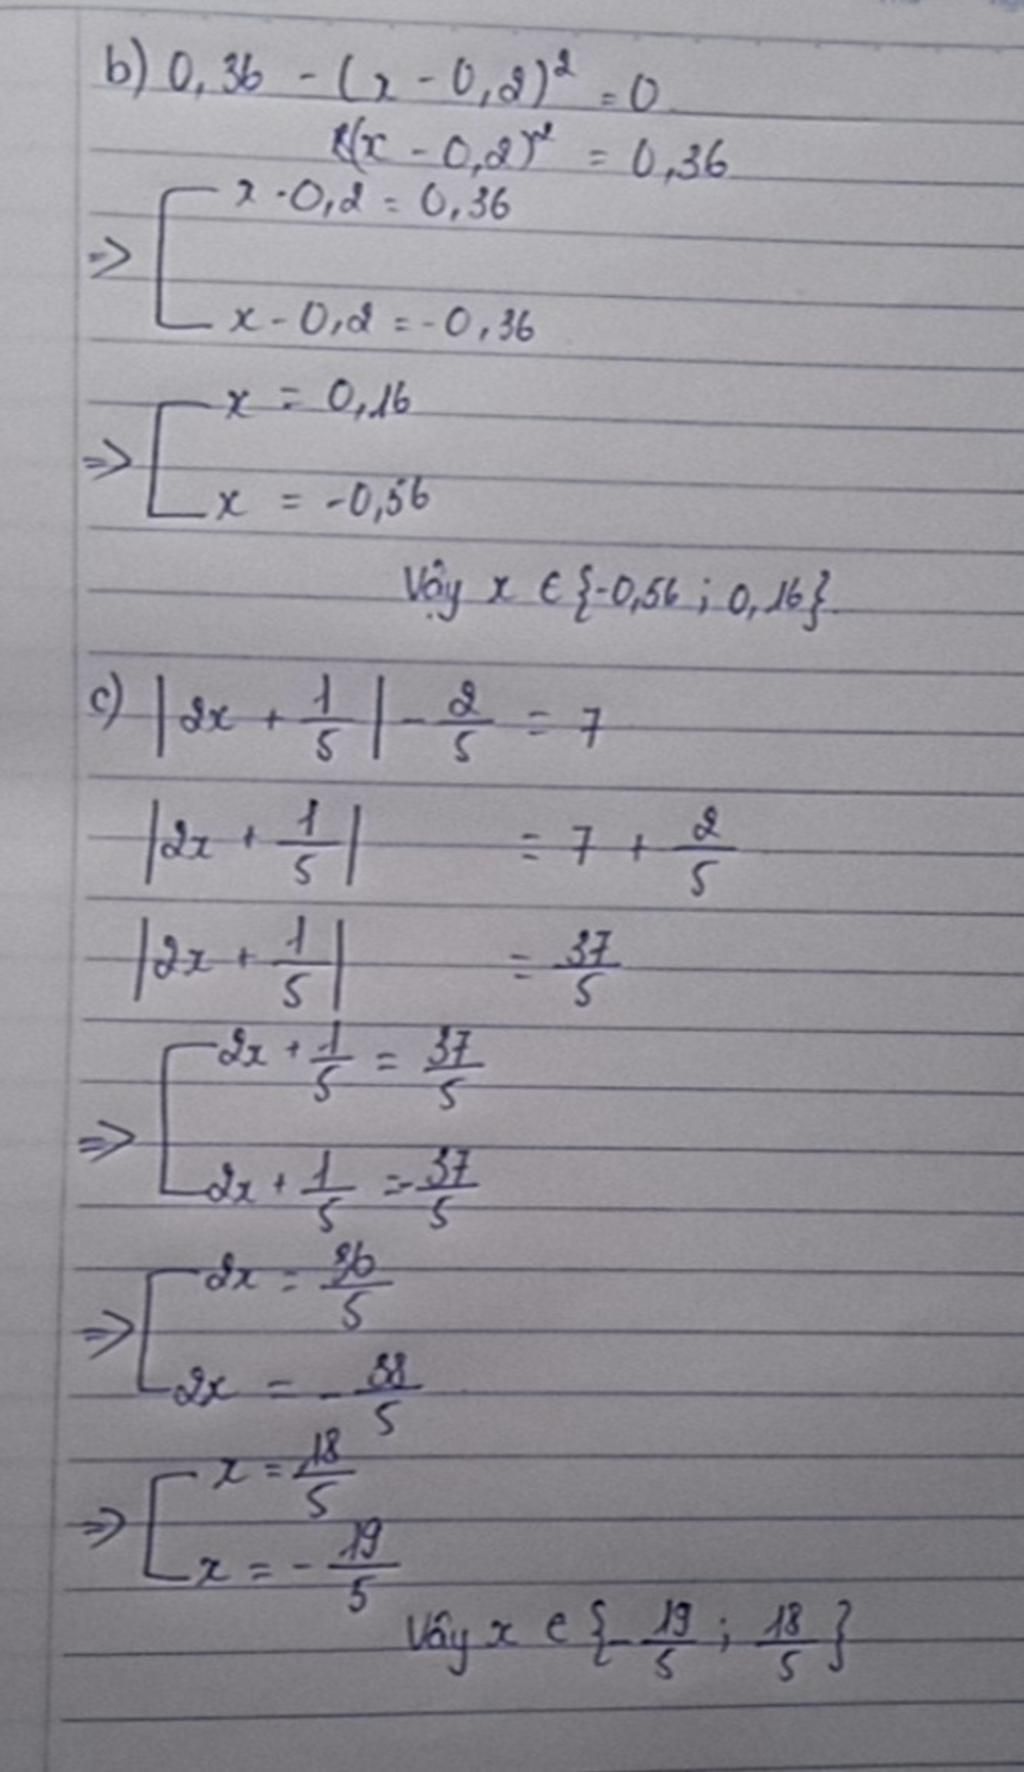 b) 0,36 - (x - 0,2)² = 0
(x - 0,2)² = 0,36
x - 0,2 = 0,36
=>
x - 0,2 = -0,36
x = 0,16
=>
x = -0,56
Vậy x ∈ {-0,56 ; 0,16}.
c) |2x + 1/5| - 2/5 = 7
|2x + 1/5| = 7 + 2/5
|2x + 1/5| = 37/5
2x + 1/5 = 37/5
=>
2x + 1/5 = -37/5
2x = 36/5
=>
2x = - 38/5
x = 18/5
=>
x = - 19/5
Vậy x ∈ {- 19/5 ; 18/5}